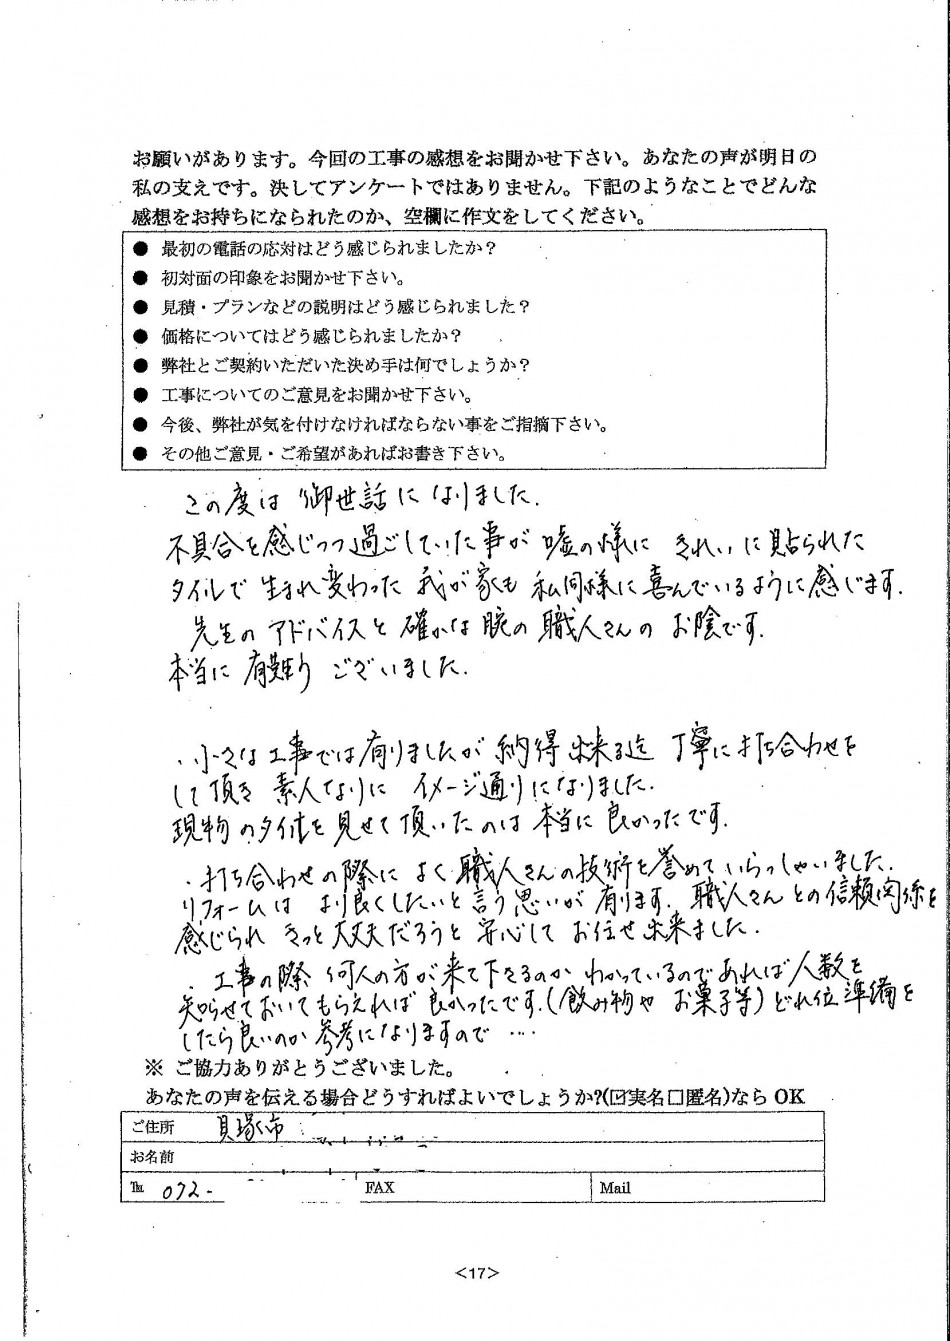 お願いがあります。今回の工事の感想をお聞かせ下さい。あなたの声が明日の
私の支えです。決してアンケートではありません。下記のようなことでどんな
感想をお持ちになられたのか、空欄に作文をしてください。
● 最初の電話の応対はどう感じられましたか？
● 初対面の印象をお聞かせ下さい。
● 見積・プランなどの説明はどう感じられました？
● 価格についてはどう感じられましたか？
● 弊社とご契約いただいた決め手は何でしょうか？
● 工事についてのご意見をお聞かせ下さい。
● 今後、弊社が気を付けなければならない事をご指摘下さい。
● その他ご意見・ご希望があればお書き下さい。
この度は御世話になりました.
不具合を感じつつ過ごしていた事が嘘の様にきれいに貼られた
タイルで生まれ変わった我が家も私同様に喜んでいるように感じます.
先生のアドバイスと確かな腕の職人さんのお陰です.
本当に有難うございました.
・小さな工事では有りましたが納得出来る迄丁寧に打ち合わせを
して頂き素人なりにイメージ通りになりました.
現物のタイルを見せて頂いたのは本当に良かったです.
・打ち合わせの際によく職人さんの技術を誉めていらっしゃいました.
リフォームはより良くしたいと言う思いが有ります.職人さんとの信頼関係を
感じられきっと大丈夫だろうと安心してお任せ出来ました.
・工事の際何人の方が来て下さるのかわかっているのであれば人数を
知らせておいてもらえれば良かったです.(飲み物やお菓子等)どれ位準備を
したら良いのか参考になりますので‥‥
※ ご協力ありがとうございました。
あなたの声を伝える場合どうすればよいでしょうか?(☑実名□匿名)なら OK
ご住所 貝塚市
お名前
℡ 072- FAX Mail
<17>